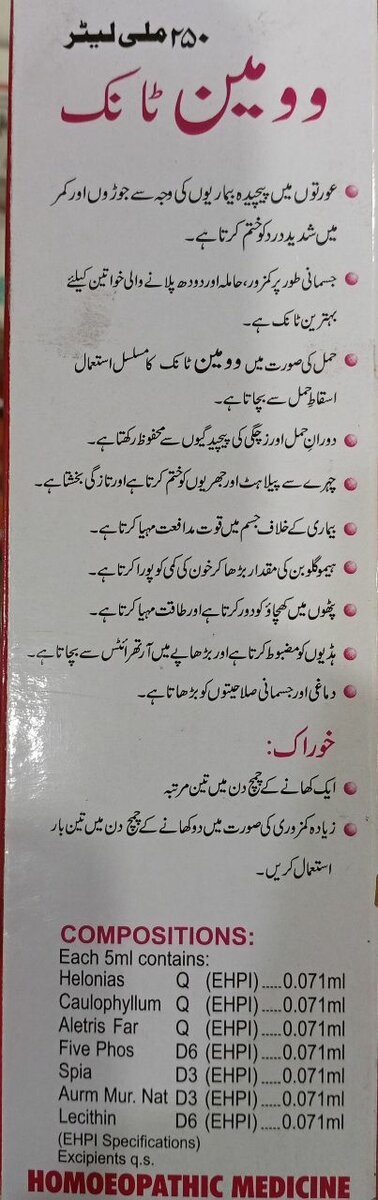 ۲۵۰ ملی لیٹر
وومین ٹانک
عورتوں میں پیچیدہ بیماریوں کی وجہ سے جوڑوں اور کمر
میں شدید درد کو ختم کرتا ہے۔
جسمانی طور پر کمزور، حاملہ اور دودھ پلانے والی خواتین کیلئے
بہترین ٹانک ہے۔
حمل کی صورت میں وومین ٹانک کا مسلسل استعمال
اسقاطِ حمل سے بچاتا ہے۔
دورانِ حمل اور زچگی کی پیچیدگیوں سے محفوظ رکھتا ہے۔
چہرے سے پیلاہٹ اور جھریوں کو ختم کرتا ہے اور تازگی بخشتا ہے۔
بیماری کے خلاف جسم میں قوت مدافعت مہیا کرتا ہے۔
ہیموگلوبن کی مقدار بڑھا کر خون کی کمی کو پورا کرتا ہے۔
پٹھوں میں کھچاؤ کو دور کرتا ہے اور طاقت مہیا کرتا ہے۔
ہڈیوں کو مضبوط کرتا ہے اور بڑھاپے میں آرتھرائٹس سے بچاتا ہے۔
دماغی اور جسمانی صلاحیتوں کو بڑھاتا ہے۔
خوراک:
ایک کھانے کے چمچ دن میں تین مرتبہ
زیادہ کمزوری کی صورت میں دو کھانے کے چمچ دن میں تین بار
استعمال کریں۔
COMPOSITIONS:
Each 5ml contains:
Helonias Q (EHPI).....0.071ml
Caulophyllum Q (EHPI).....0.071ml
Aletris Far Q (EHPI).....0.071ml
Five Phos D6 (EHPI).....0.071ml
Spia D3 (EHPI).....0.071ml
Aurm Mur. Nat D3 (EHPI).....0.071ml
Lecithin D6 (EHPI).....0.071ml
(EHPI Specifications)
Excipients q.s.
HOMOEOPATHIC MEDICINE